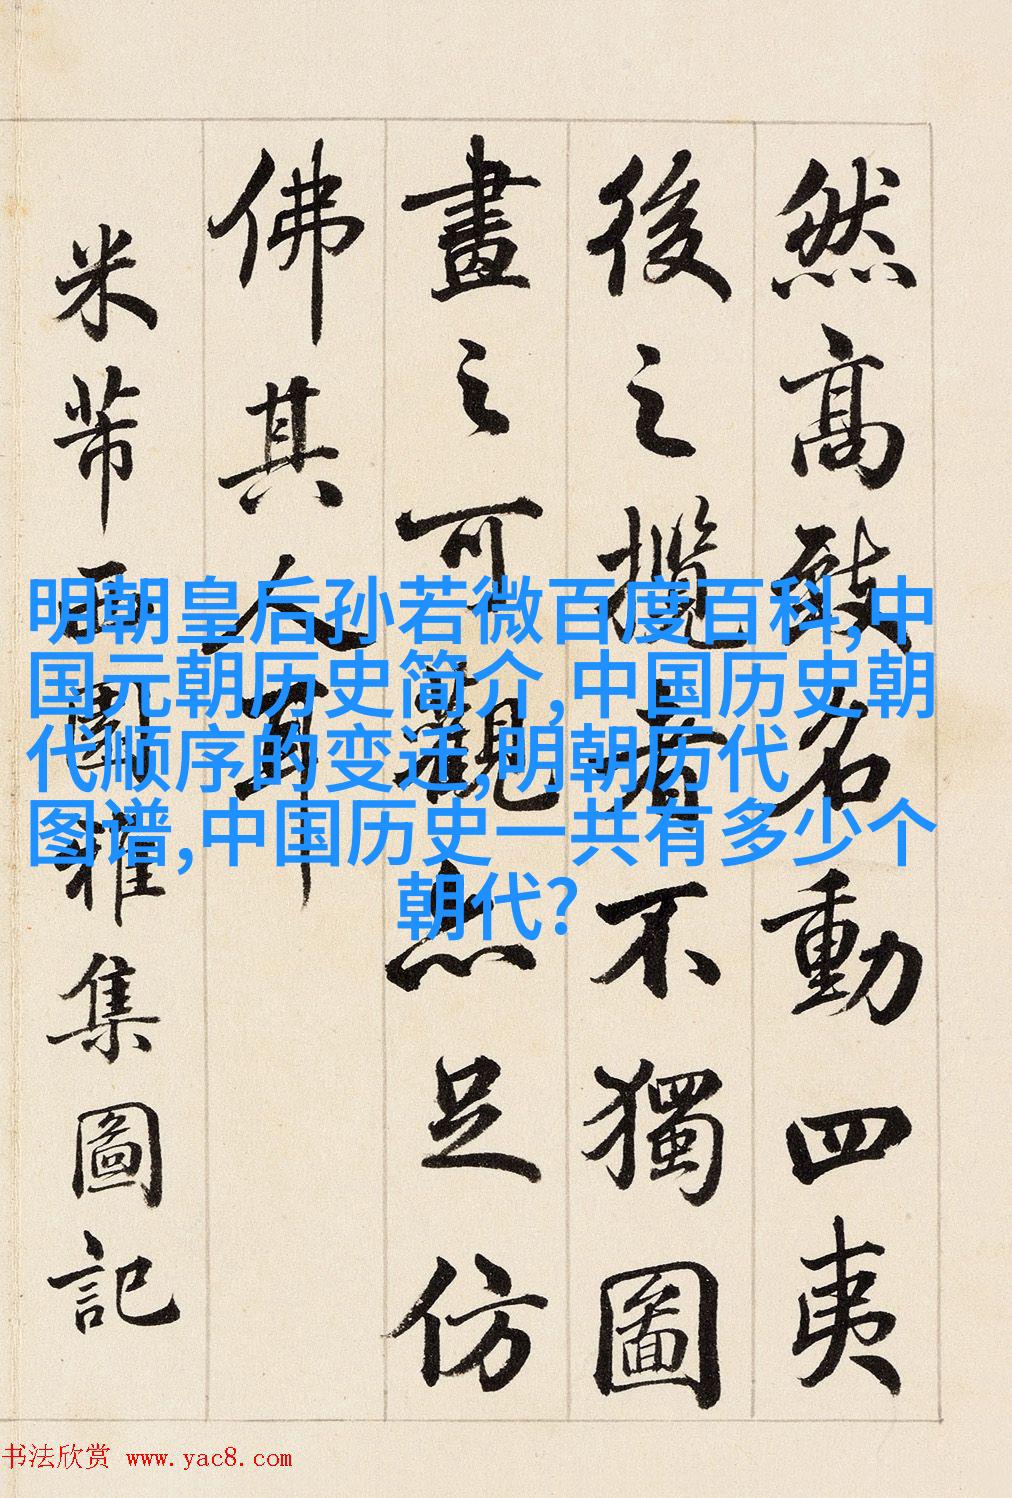 然高致名動四夷
後之攬者不獨圖
畫之可觀亦足仿
佛其人耳
米芾西園雅集圖記
明朝皇后孙若微百度百科,中
国元朝历史简介,中国历史朝
代顺序的变迁,明朝历代
图谱,中国历史一共有多少个
朝代?
书法欣赏 www.yac8.com